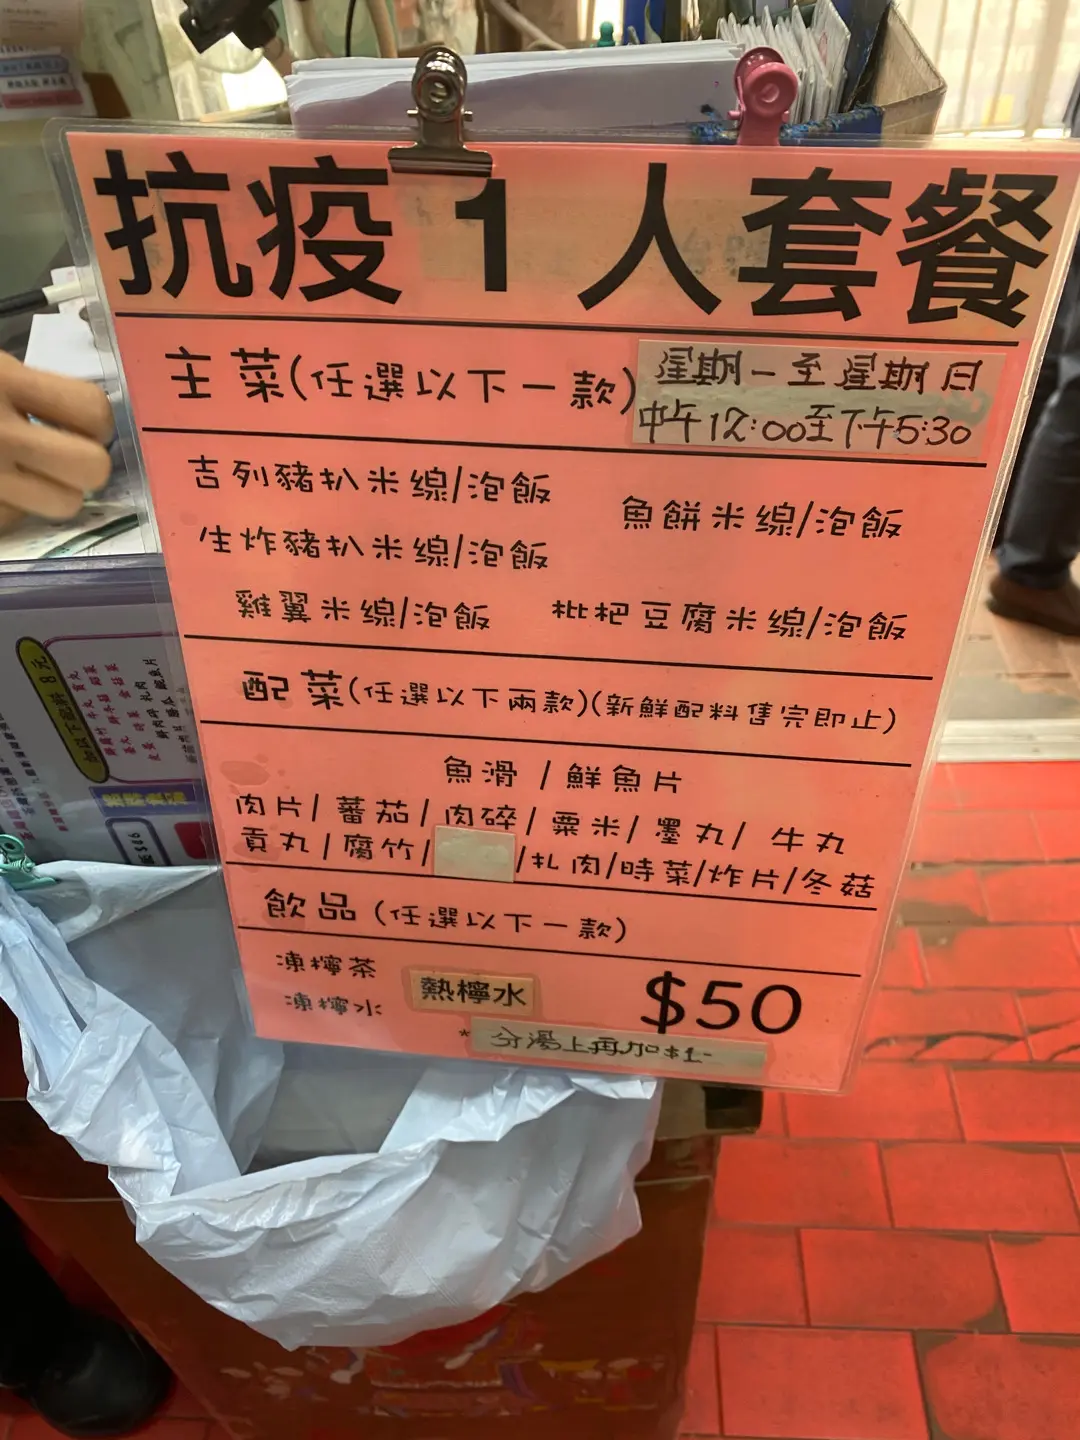 抗疫1人套餐
主菜(任選以下一款)
星期一至星期日
中午12:00至下午5:30
吉列豬扒米線/泡飯
魚餅米線/泡飯
生炸豬扒米線/泡飯
雞翼米線/泡飯
枇杷豆腐米線/泡飯
配菜(任選以下兩款)(新鮮配料售完即止)
魚滑 / 鮮魚片
肉片/ 蕃茄/ 肉碎/ 粟米/ 墨丸/ 牛丸
貢丸/ 腐竹/ /扎肉/時菜/炸片/冬菇
飲品 (任選以下一款)
凍檸茶
凍檸水
熱檸水
$50
* 分湯上再加$1-